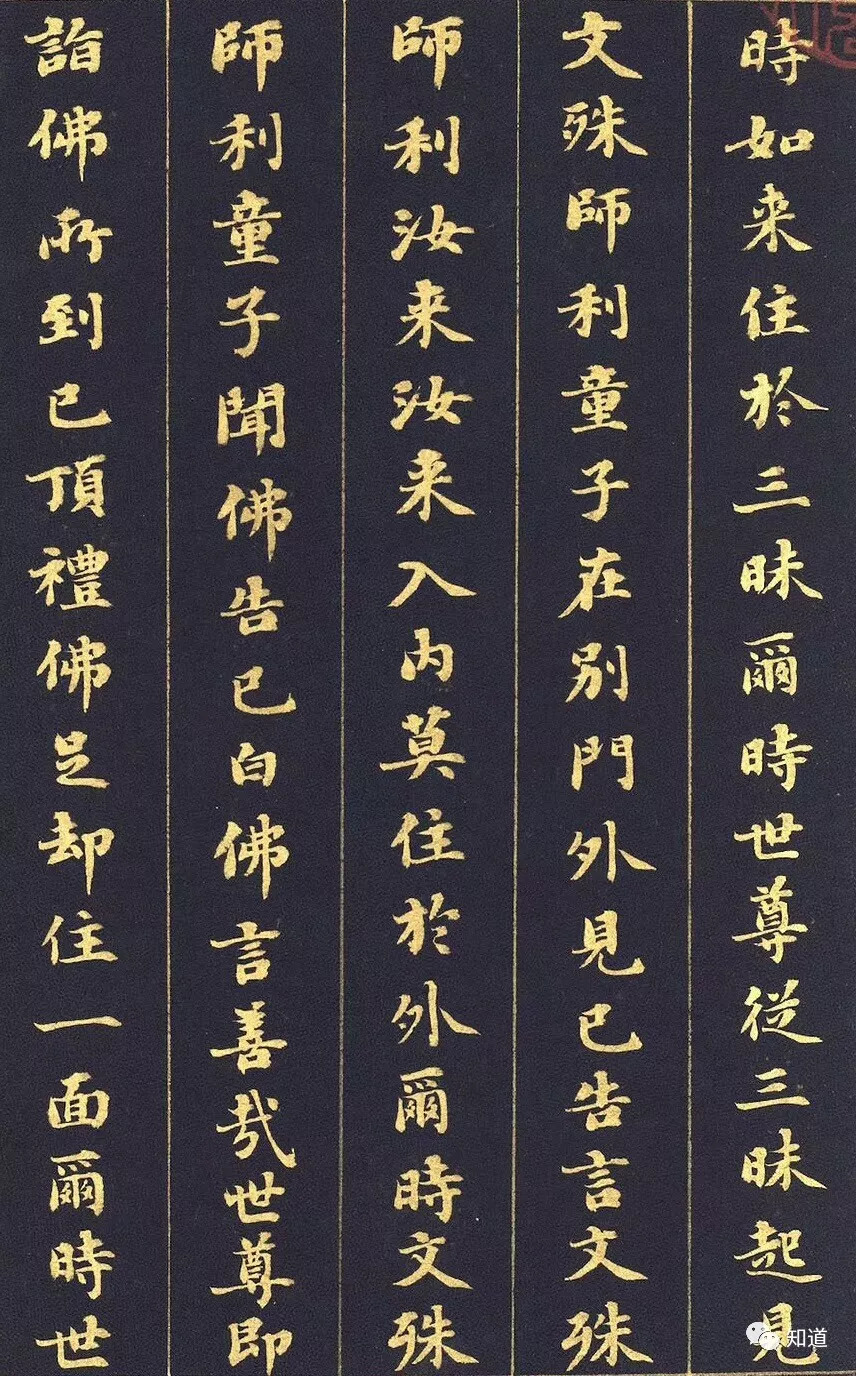 時如来住於三昧爾時世尊従三昧起見
文殊師利童子在別門外見已告言文殊
師利汝来汝来入内莫住於外爾時文殊
師利童子聞佛告已白佛言善哉世尊即
詣佛所到已頂禮佛足却住一面爾時世
知道